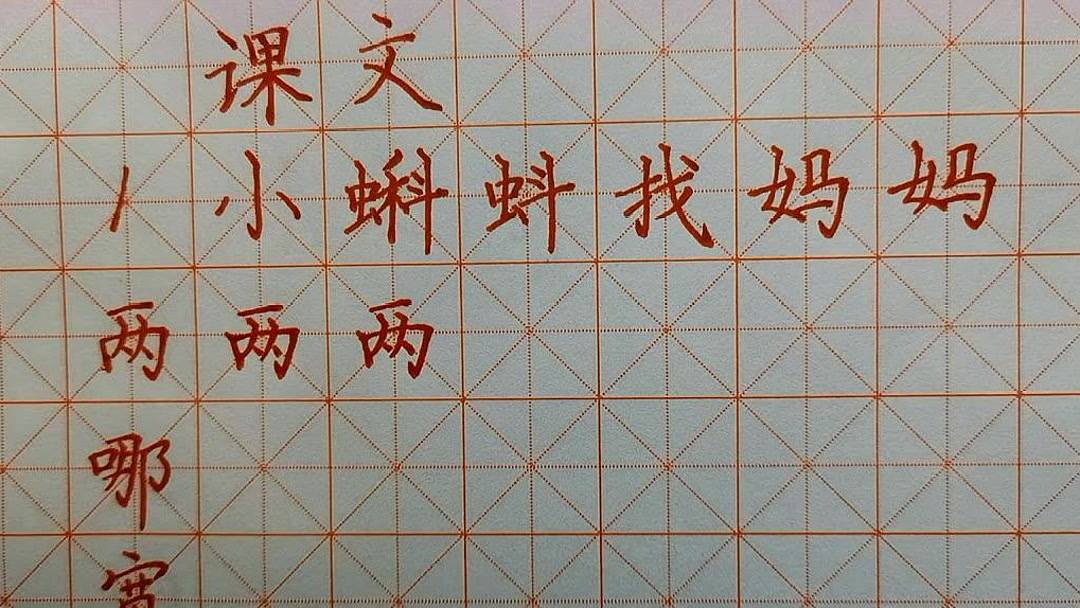 课文
1小蝌蚪找妈妈
两两两
哪